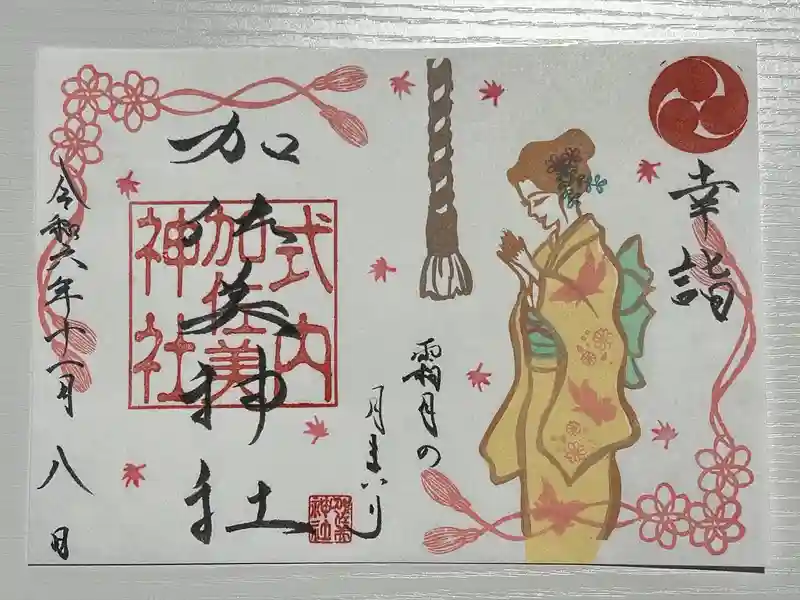 幸詣
霜月の
月まいり
加佐美神社
式内
加佐美
神社
加佐美神社
令和六年十一月八日